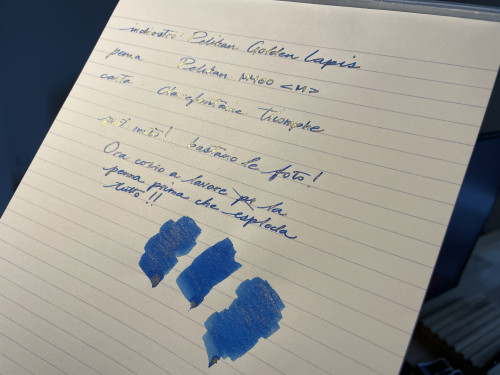 inchiostro: Pelikan Golden Lapis
penna Pelikan M400 <M>
carta: Clairefontaine triomphe
bastano le foto!
Ora corro a lavare la
penna prima che esploda
tutto!!